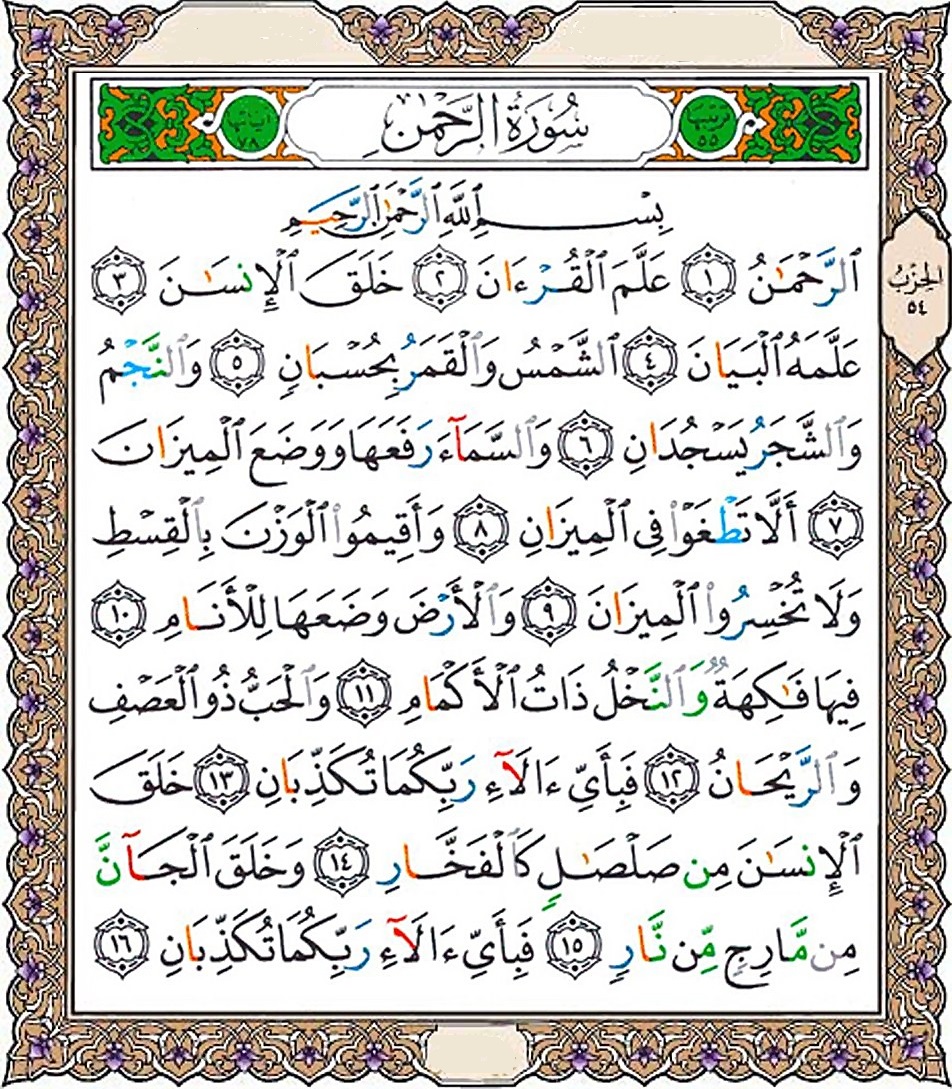 ترتيبها ٥٥
سُورَةُ الرَّحْمٰن
آياتها ٧٨
بِسْمِ ٱللَّهِ ٱلرَّحْمَٰنِ ٱلرَّحِيمِ
ٱلرَّحْمَٰنُ ١ عَلَّمَ ٱلْقُرْءَانَ ٢ خَلَقَ ٱلْإِنسَٰنَ ٣
عَلَّمَهُ ٱلْبَيَانَ ٤ ٱلشَّمْسُ وَٱلْقَمَرُ بِحُسْبَانٍ ٥ وَٱلنَّجْمُ
وَٱلشَّجَرُ يَسْجُدَانِ ٦ وَٱلسَّمَآءَ رَفَعَهَا وَوَضَعَ ٱلْمِيزَانَ
٧ أَلَّا تَطْغَوْا۟ فِى ٱلْمِيزَانِ ٨ وَأَقِيمُوا۟ ٱلْوَزْنَ بِٱلْقِسْطِ
وَلَا تُخْسِرُوا۟ ٱلْمِيزَانَ ٩ وَٱلْأَرْضَ وَضَعَهَا لِلْأَنَامِ ١٠
فِيهَا فَٰكِهَةٌ وَٱلنَّخْلُ ذَاتُ ٱلْأَكْمَامِ ١١ وَٱلْحَبُّ ذُو ٱلْعَصْفِ
وَٱلرَّيْحَانُ ١٢ فَبِأَىِّ ءَالَآءِ رَبِّكُمَا تُكَذِّبَانِ ١٣ خَلَقَ
ٱلْإِنسَٰنَ مِن صَلْصَٰلٍ كَٱلْفَخَّارِ ١٤ وَخَلَقَ ٱلْجَآنَّ
مِن مَّارِجٍ مِّن نَّارٍ ١٥ فَبِأَىِّ ءَالَآءِ رَبِّكُمَا تُكَذِّبَانِ ١٦
الحِزْبُ
٥٤